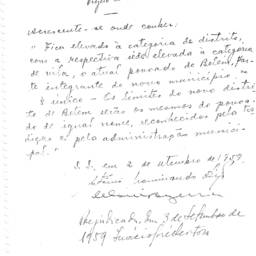 Acrescente-se onde couber:
"Fica elevado à categoria de distrito,
com a respectiva sede elevada à categoria
de vila, o atual povoado de Belém, par-
te integrante do novo município."
§ único - Os limites do novo distri-
to de Belém serão os mesmos do povoa-
do de igual nome, reconhecidos pela
e pela administração munici-
pal."
S.S. em 2 de setembro de 1959.
Prejudicada. Em 3 de Setembro de
1959.